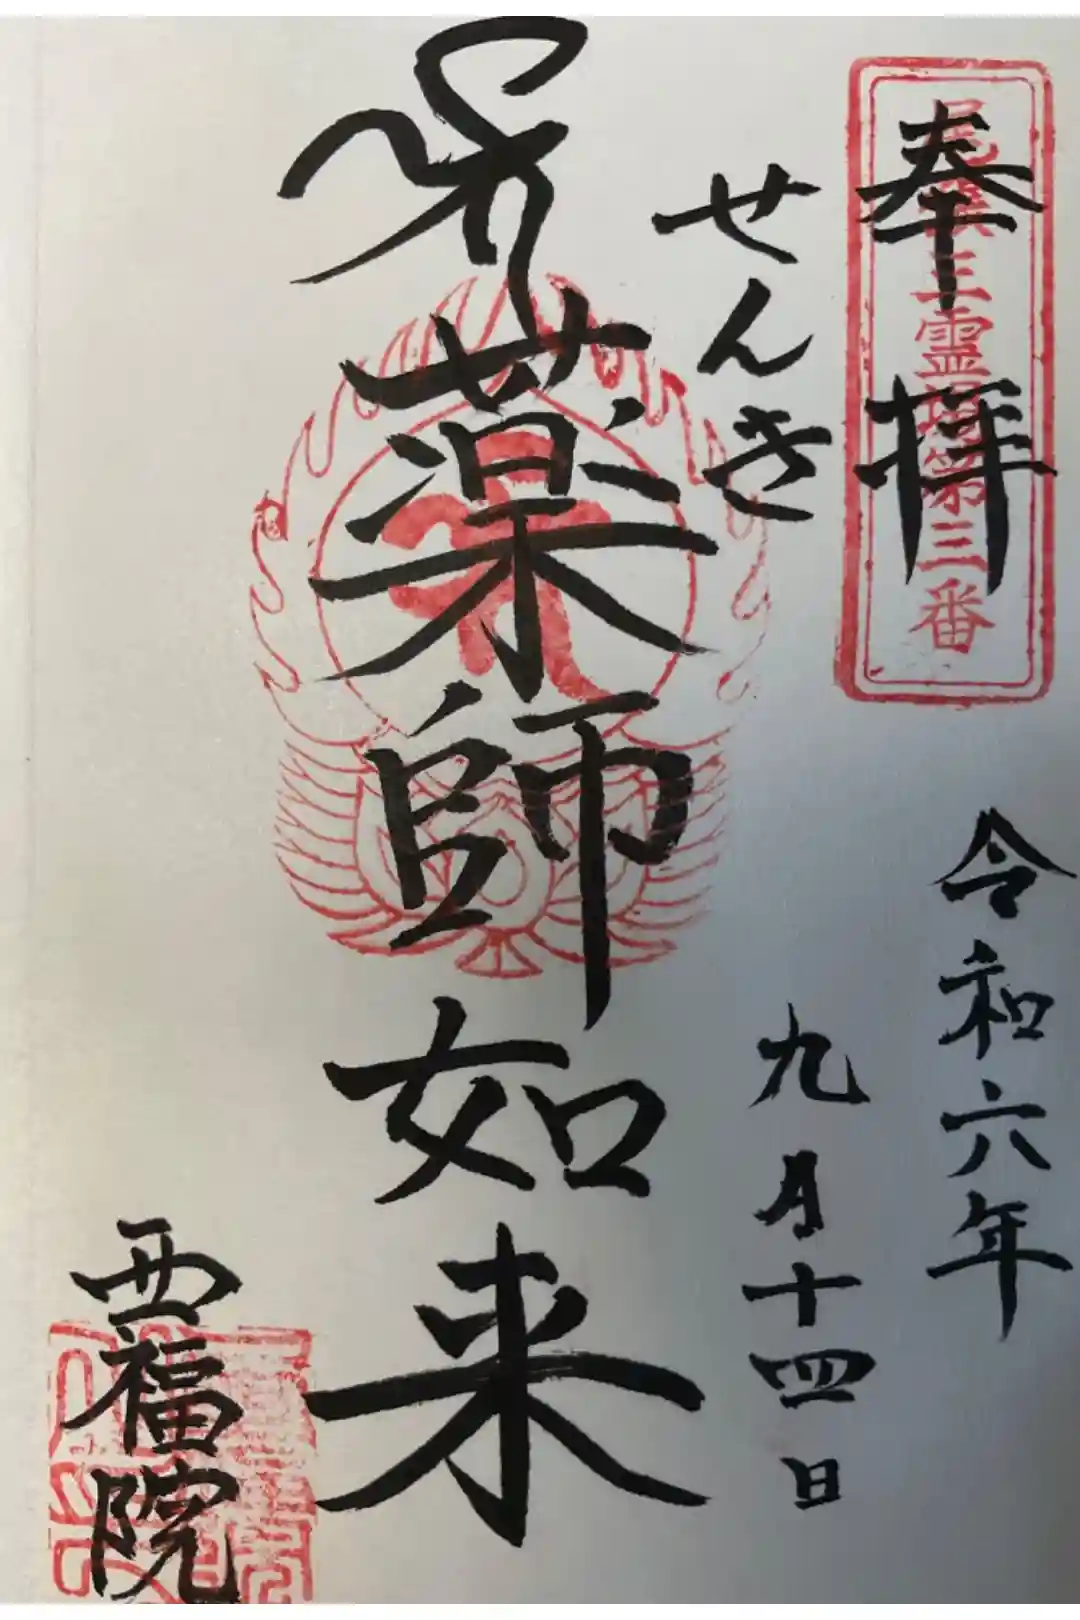 奉拝
三霊場第三番
令和六年
九月十四日
せんき
薬師如来
西福院